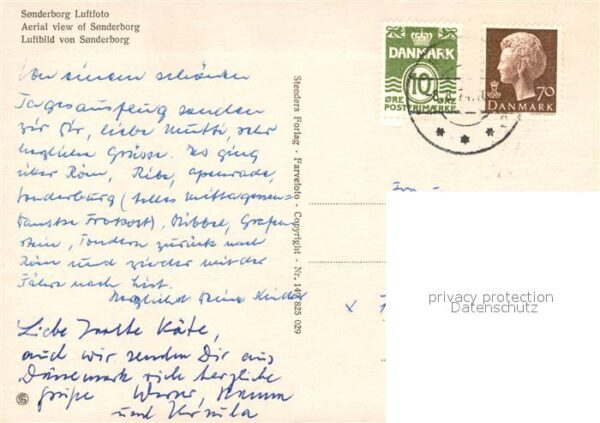 Sønderborg Luftfoto
Aerial view of Sønderborg
Luftbild von Sønderborg
Von einem schönen
Tagesausflug senden
wir Dir, liebe Mutti, sehr
herzliche Grüsse. Es ging
über Röm, Ribe, Apenrade,
Sonderburg (tolles Mittagessen -
Frokost), Düppel, Grafen-
stein, Tondern zurück nach
Röm und wieder mit der
Fähre nach List.
Herzlichst Deine Kinder
Liebe Tante Käte,
auch wir senden Dir aus
Dänemark viele herzliche
Grüße Werner, Hanna
und Ursula
Stenders Forlag - Farvefoto - Copyright - Nr. 149 825 029
DANMARK
10
ØRE
POSTFRIMÆRKE
70
DANMARK
privacy protection
Datenschutz